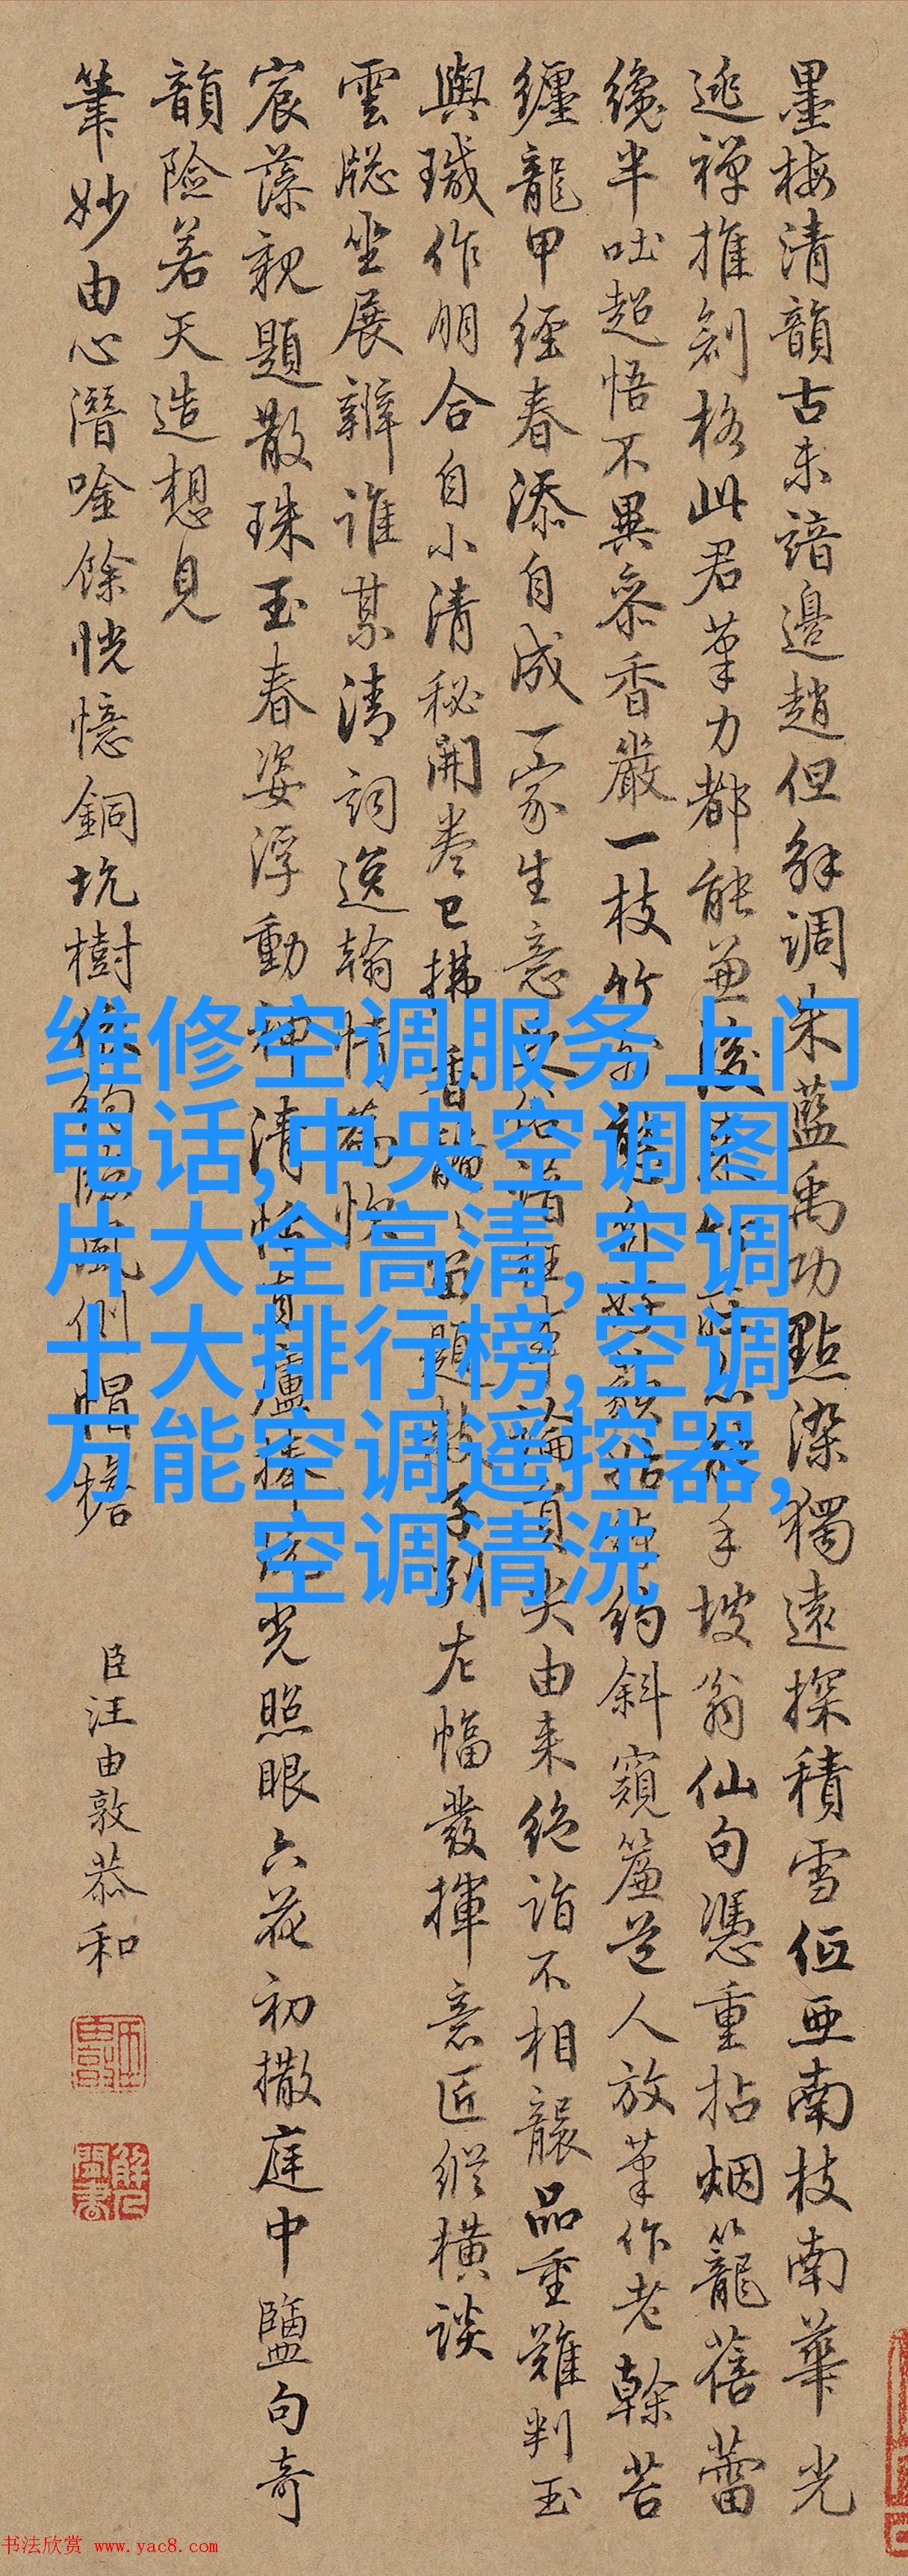 墨梅清韻古未諳邊趙但解調朱藍禹功點染獨遠探積雪低亞南枝南華光
逃禪推剏格此君筆力都能兼
手坡翁仙句憑重拈烟籠蓓蕾
纔半吐超悟不異參香嚴一枝竹外
約斜窺簷道人放筆作老榦苔
纏龍甲經春添自成一家生意
由来絶詣不相襲品重難判玉
與珷作朋合自小清秘開卷已拂
題
列左幅發揮意匠縱橫談
雲牕坐展辨誰某清詞逸翰情
宸藻親題散珠玉春姿浮動神清
光照眼六花初撒庭中鹽句奇
韻險若天造想見
筆妙由心潛唫餘恍憶銅坑樹
側帽檐
臣汪由敦恭和
维修空调服务上门
电话,中央空调图
片大全高清,空调
十大排行榜,空调
万能空调遥控器,
空调清洗
书法欣赏 www.yac8.com